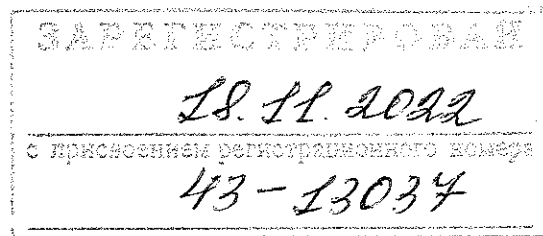 ЗАРЕГИСТРИРОВАН
18.11.2022
с присвоением регистрационного номера
43-13037